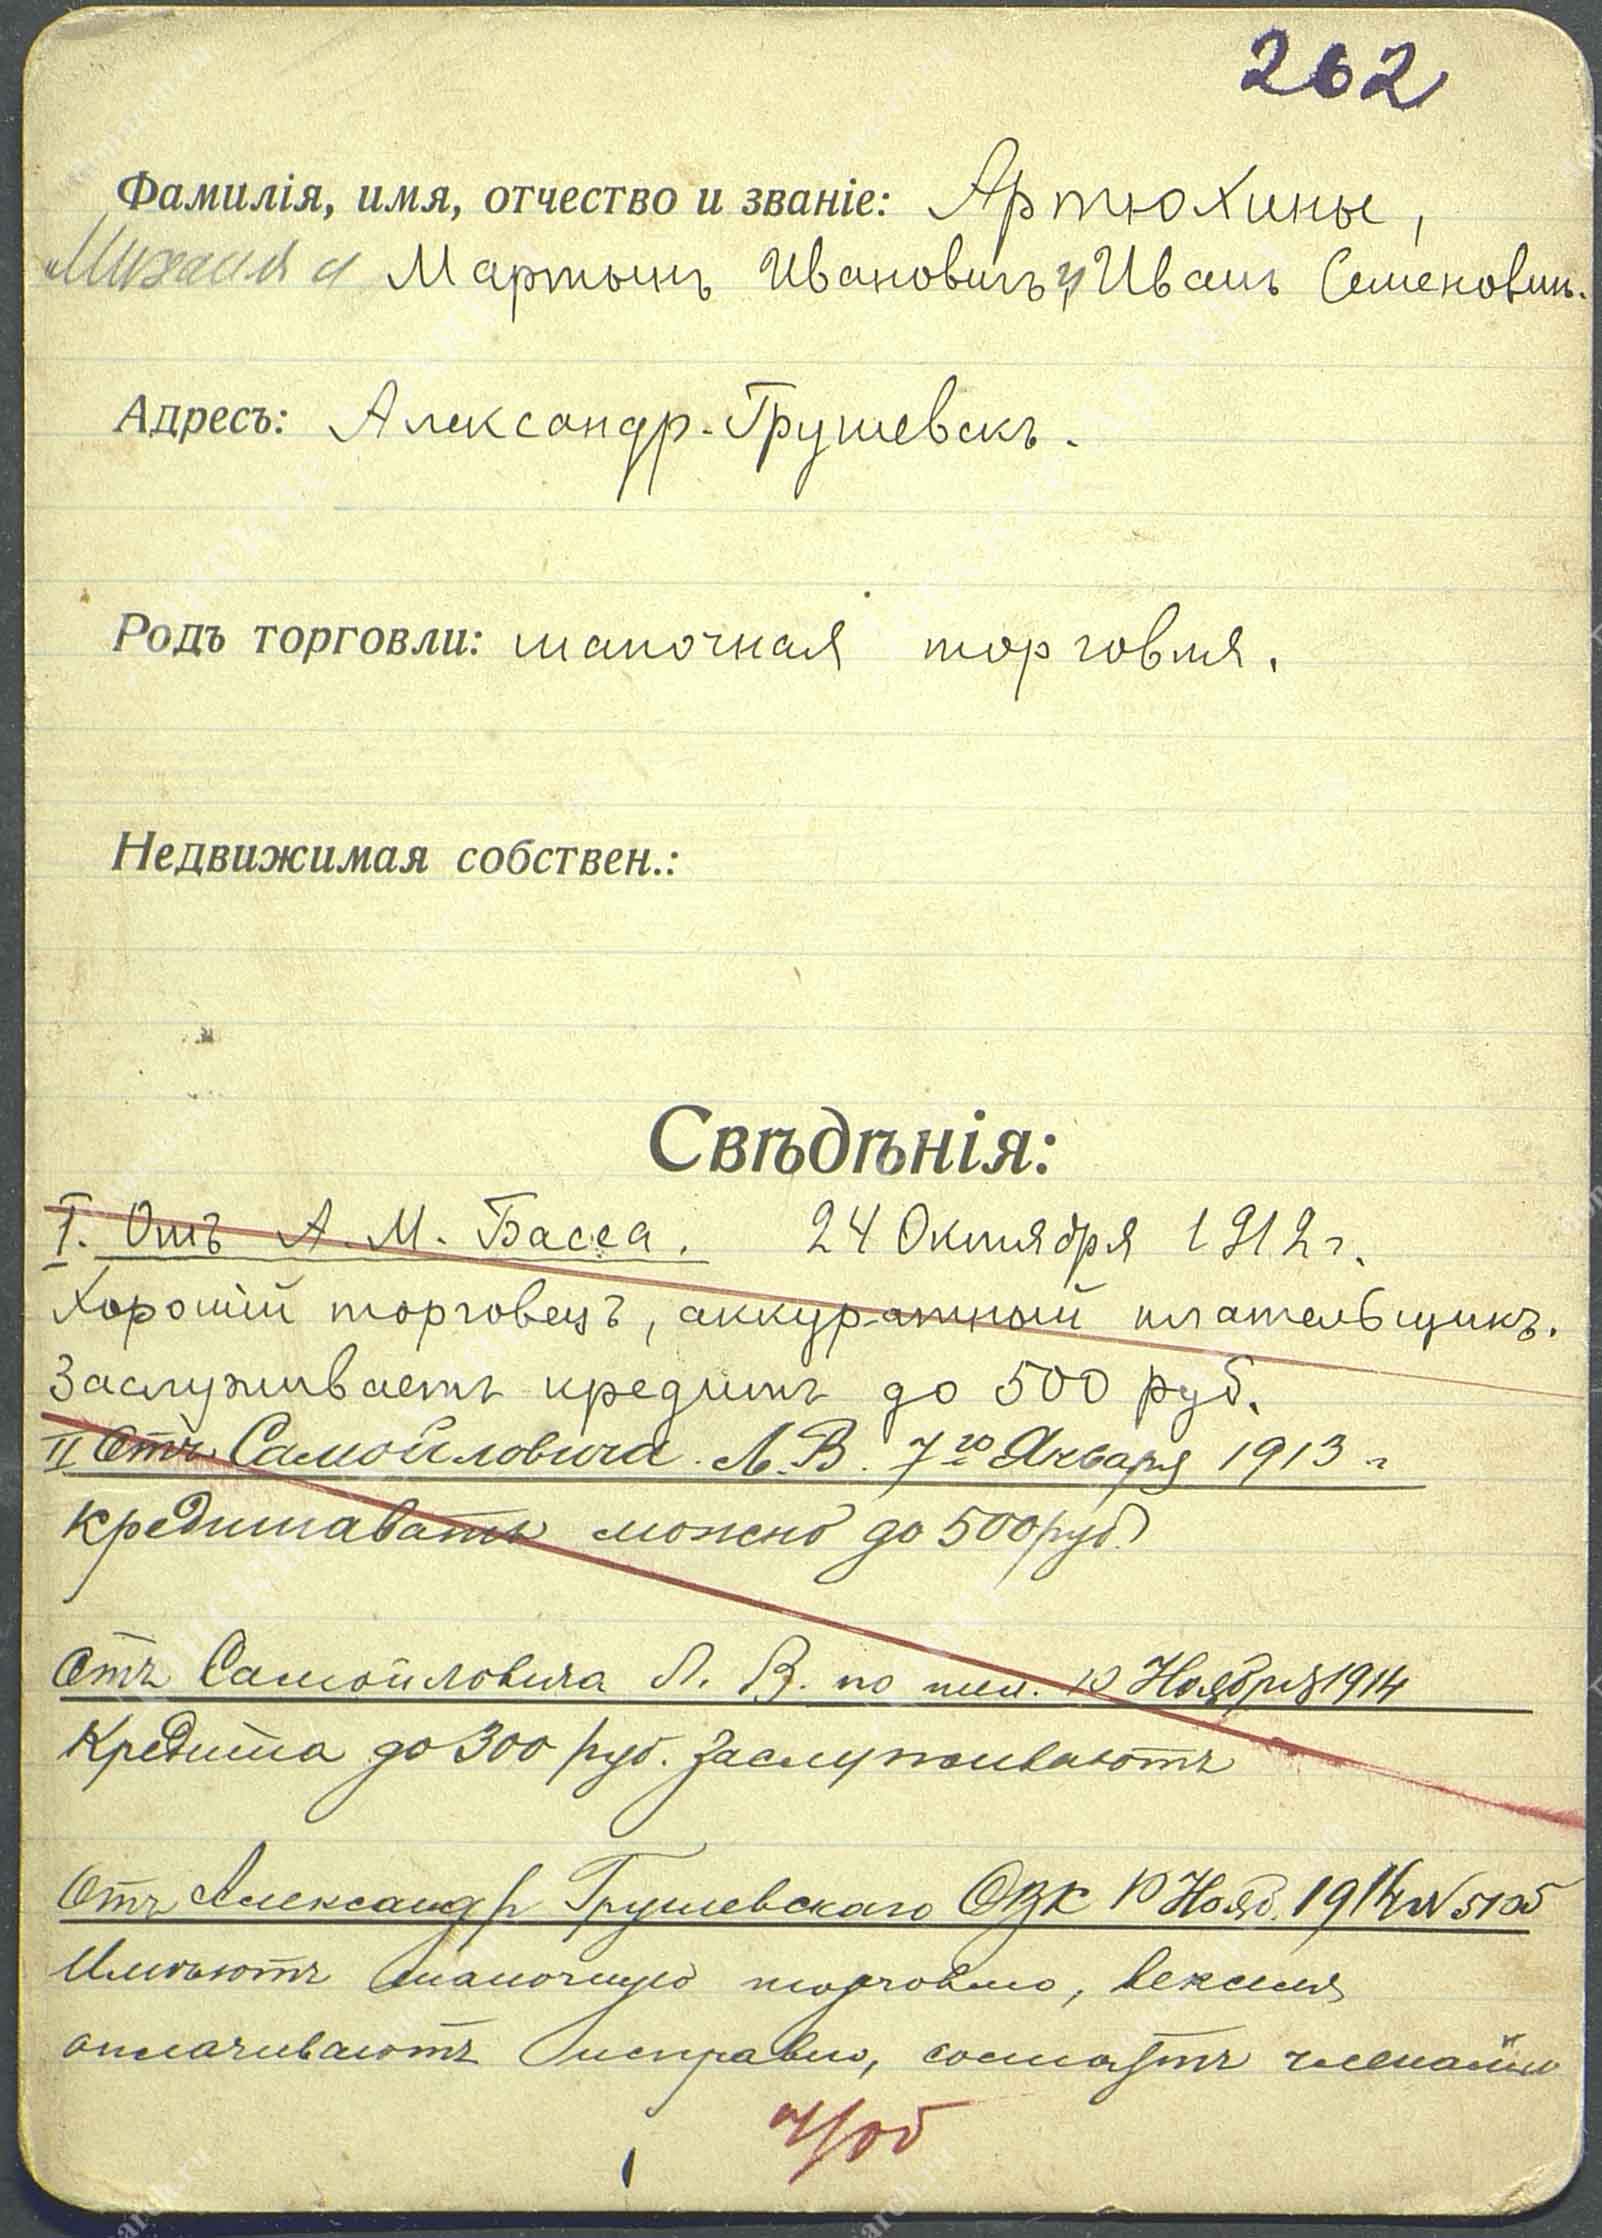 262
Фамилія, имя, отчество и званіе: Артюхины,
Михаилъ и Мартынъ Ивановичъ и Иванъ Семенович.
Адресъ: Александр-Грушевскъ.
Родъ торговли: шапочная торговля.
Недвижимая собствен.:
Свѣдѣнія:
I. Отъ А. М. Басса. 24 Октября 1912 г.
Хорошій торговецъ, аккуратный плательщикъ.
Заслуживаетъ кредитъ до 500 руб.
II Отъ Самойловича Л. В. 7го Января 1913 г
кредитовать можно до 500 руб.
Отъ Самойловича Л. В. по тел. 10 Ноября 1914
Кредита до 300 руб. заслуживаютъ
Отъ Александр Грушевскаго ОВК 10 Нояб. 1914 N
Имѣютъ шапочную торговлю, векселя
оплачиваютъ исправно, состоятъ членами